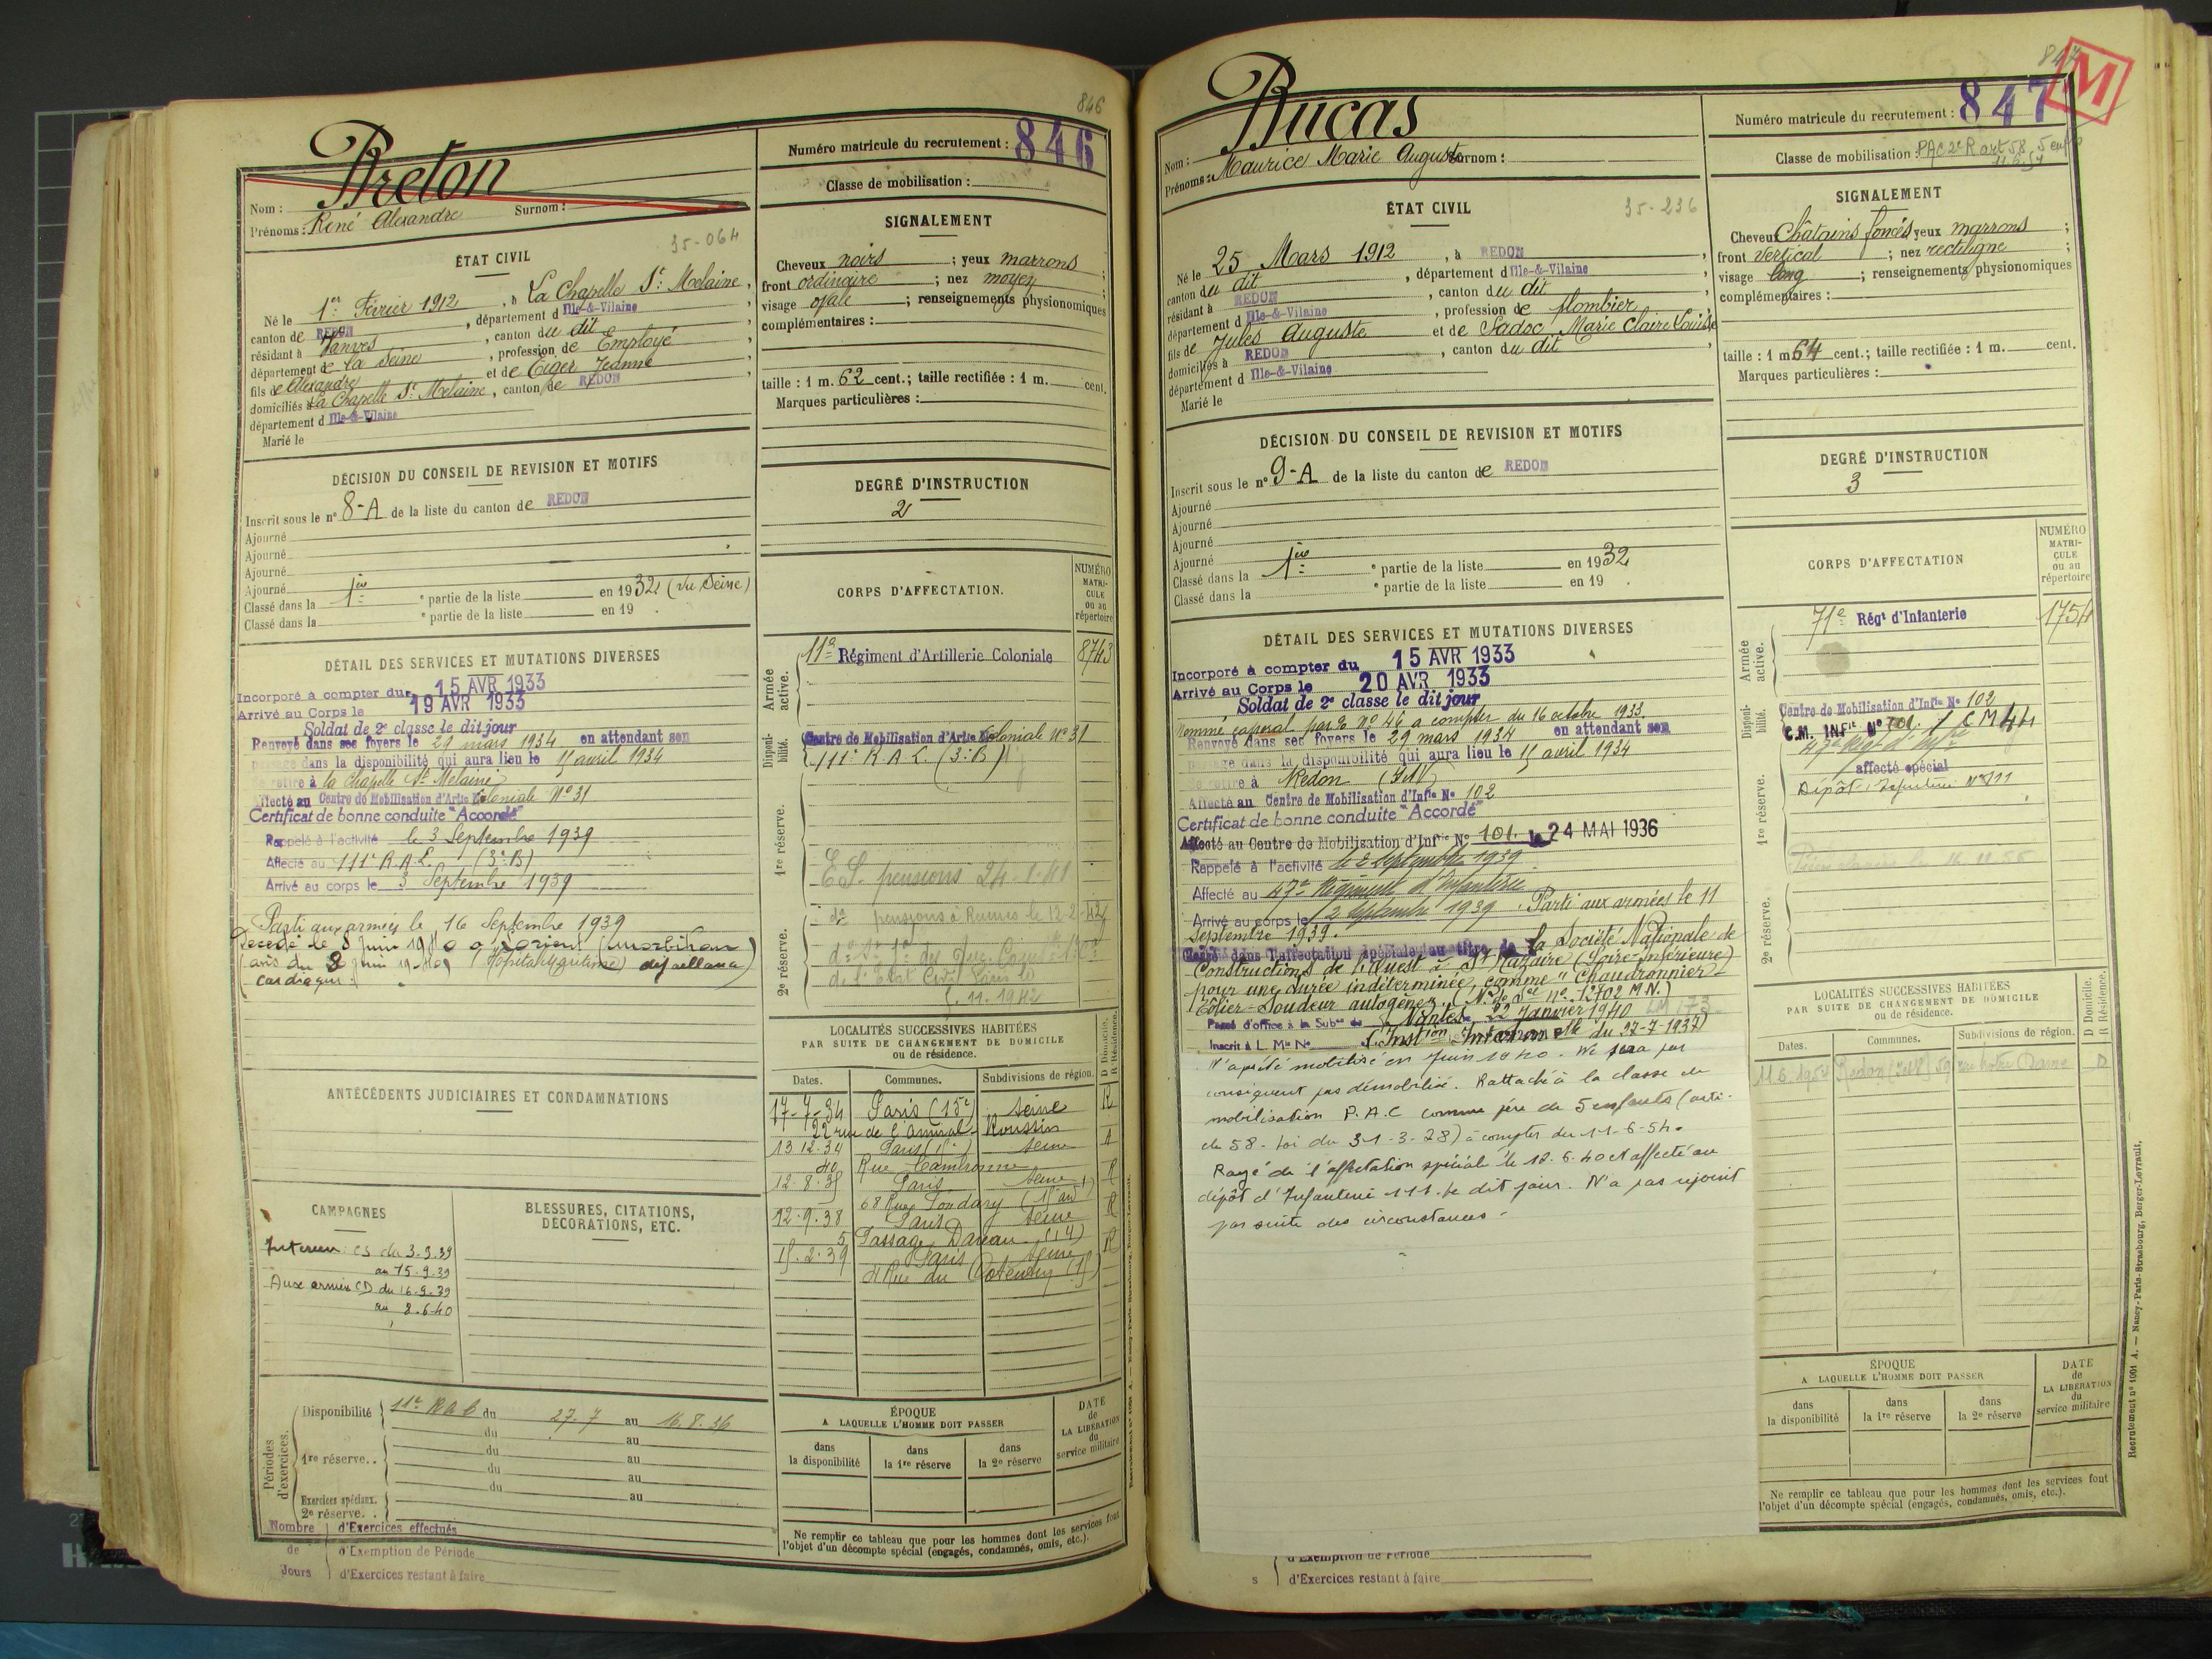 846
Breton
Nom :
Surnom :
Prénoms : René Alexandre
Numéro matricule du recrutement : 846
Classe de mobilisation :
35-064
ÉTAT CIVIL
Né le 1er Février 1912, à La Chapelle St Melaine,
canton de REDON, département d Ille-&-Vilaine
résidant à Vanves, canton du dit
département de la Seine, profession de Employé
fils de Alexandre et de Eiger Jeanne
domiciliés à La Chapelle St Melaine, canton de REDON
département d Ille-&-Vilaine
Marié le
SIGNALEMENT
Cheveux noirs ; yeux marrons ;
front ordinaire ; nez moyen ;
visage ovale ; renseignements physionomiques
complémentaires :
taille : 1 m. 62 cent. ; taille rectifiée : 1 m. cent.
Marques particulières :
DÉCISION DU CONSEIL DE REVISION ET MOTIFS
Inscrit sous le n° 8-A de la liste du canton de REDON
Ajourné
Ajourné
Ajourné
Ajourné
Classé dans la 1re partie de la liste en 1932 (Vu Seine)
Classé dans la partie de la liste en 19 .
DEGRÉ D'INSTRUCTION
2
CORPS D'AFFECTATION.
NUMÉRO MATRI-CULE ou au répertoire
Armée active.
11e Régiment d'Artillerie Coloniale 8743
Disponi-bilité.
Centre de Mobilisation d'Artie Coloniale N° 31
111e R A L (3e B)
1re réserve.
E S pensions 24-1-41
2e réserve.
DÉTAIL DES SERVICES ET MUTATIONS DIVERSES
Incorporé à compter du 15 AVR 1933
Arrivé au Corps le 19 AVR 1933
Soldat de 2e classe le dit jour
Renvoyé dans ses foyers le 29 mars 1934 en attendant son
passage dans la disponibilité qui aura lieu le 15 avril 1934
Se retire à la Chapelle St Melaine
Affecté au Centre de Mobilisation d'Artie Coloniale N° 31
Certificat de bonne conduite "Accordé"
Rappelé à l'activité le 3 Septembre 1939
Affecté au 111e R.A.L. (3e B)
Arrivé au corps le 3 Septembre 1939
Parti aux armées le 16 Septembre 1939
Décédé le 8 juin 1940 à Lorient (Morbihan)
(avis du 8 juin 1940 Hopital Maritime) défaillance
cardiaque
ANTÉCÉDENTS JUDICIAIRES ET CONDAMNATIONS
LOCALITÉS SUCCESSIVES HABITÉES
PAR SUITE DE CHANGEMENT DE DOMICILE
ou de résidence.
Dates.
Communes.
Subdivisions de région.
D Domicile. R Résidence.
17-7-34 Paris (15e) Seine R
22 rue de l'Amiral Roussin
13 12-34 Paris Seine
40 Rue Cambronne
12-8-35 Paris Seine R
68 Rue Fondary (15e arrt)
12-9-38 Paris Seine R
5 Passage Dareau (14)
15-2-39 Paris Seine R
Rue du Cotentin (15)
CAMPAGNES
Intérieur CS du 3.9.39
au 15.9.39
Aux armées CD du 16.9.39
au 8.6.40
BLESSURES, CITATIONS,
DÉCORATIONS, ETC.
Périodes d'exercices.
Disponibilité 11e R A C du 27.7 au 16.8.36
du au
1re réserve.. du au
du au
du au
Exercices spéciaux.
2e réserve. . au
Nombre de Jours
d'Exercices effectués
d'Exemption de Période
d'Exercices restant à faire
ÉPOQUE
A LAQUELLE L'HOMME DOIT PASSER
dans la disponibilité
dans la 1re réserve
dans la 2e réserve
DATE de LA LIBÉRATION du service militaire
Ne remplir ce tableau que pour les hommes dont les services font
l'objet d'un décompte spécial (engagés, condamnés, omis, etc.).
847
M
Bucas
Nom :
Surnom :
Prénoms : Maurice Marie Auguste
Numéro matricule du recrutement : 847
Classe de mobilisation : PAC 2e R art 58, 5 enfts
11.6.54
35-236
ÉTAT CIVIL
Né le 25 Mars 1912, à REDON
canton du dit, département d Ille-&-Vilaine
résidant à REDON, canton du dit
département d Ille-&-Vilaine, profession de plombier
fils de Jules Auguste et de Sadoc Marie Claire Louise
domiciliés à REDON, canton du dit
département d Ille-&-Vilaine
Marié le
SIGNALEMENT
Cheveux Châtains foncés yeux marrons ;
front Vertical ; nez rectiligne ;
visage long ; renseignements physionomiques
complémentaires :
taille : 1 m 64 cent. ; taille rectifiée : 1 m. cent.
Marques particulières :
DÉCISION DU CONSEIL DE REVISION ET MOTIFS
Inscrit sous le n° 9-A de la liste du canton de REDON
Ajourné
Ajourné
Ajourné
Ajourné
Classé dans la 1re partie de la liste en 1932
Classé dans la partie de la liste en 19 .
DEGRÉ D'INSTRUCTION
3
CORPS D'AFFECTATION
NUMÉRO MATRI-CULE ou au répertoire
Armée active.
71e Régt d'Infanterie 1754
Disponi-bilité.
Centre de Mobilisation d'Infie N° 102
C.M. INFie N° 101 / C M 44
47e Régt d'Infie
affecté spécial
Dépôt Infanterie N° 111
1re réserve.
2e réserve.
DÉTAIL DES SERVICES ET MUTATIONS DIVERSES
Incorporé à compter du 15 AVR 1933
Arrivé au Corps le 20 AVR 1933
Soldat de 2e classe le dit jour
Nommé caporal par O N° 46 à compter du 16 octobre 1933.
Renvoyé dans ses foyers le 29 mars 1934 en attendant son
passage dans la disponibilité qui aura lieu le 15 avril 1934
Se retire à Redon (I&V)
Affecté au Centre de Mobilisation d'Infie N° 102
Certificat de bonne conduite "Accordé"
Affecté au Centre de Mobilisation d'Infie N° 101 le 24 MAI 1936
Rappelé à l'activité le 2 Septembre 1939
Affecté au 47e Régiment d'Infanterie
Arrivé au corps le 2 Septembre 1939. Parti aux armées le 11
Septembre 1939.
Classé dans l'affectation spéciale au titre de la Société Nationale de
Constructions de l'Ouest à St Nazaire (Loire-Inférieure)
pour une durée indéterminée, comme "Chaudronnier-
Tôlier-Soudeur autogène". n° 12702 M.N.)
Passé d'office à la Subon de Nantes le 22 Janvier 1940
Inscrit à L. Mle N° (Instion Interlle du 27-7-1937)
N'a pas été mobilisé en Juin 1940. Ne sera par
conséquent pas démobilisé. Rattaché à la classe de
mobilisation P.A.C comme père de 5 enfants (arti-
cle 58 - loi du 31-3-28) à compter du 11-6-54.
Rayé de l'affectation spéciale le 18.6.40 et affecté au
dépôt d'Infanterie 111 le dit jour. N'a pas rejoint
par suite des circonstances.
LOCALITÉS SUCCESSIVES HABITÉES
PAR SUITE DE CHANGEMENT DE DOMICILE
ou de résidence.
Dates.
Communes.
Subdivisions de région.
D Domicile. R Résidence.
11.6.1954 Redon (I&V) 59 rue Notre Dame D
ÉPOQUE
A LAQUELLE L'HOMME DOIT PASSER
dans la disponibilité
dans la 1re réserve
dans la 2e réserve
DATE de LA LIBÉRATION du service militaire
Ne remplir ce tableau que pour les hommes dont les services font
l'objet d'un décompte spécial (engagés, condamnés, omis, etc.).
d'Exemption de Période
d'Exercices restant à faire
Recrutement n° 1001 A. — Nancy-Paris-Strasbourg, Berger-Levrault.